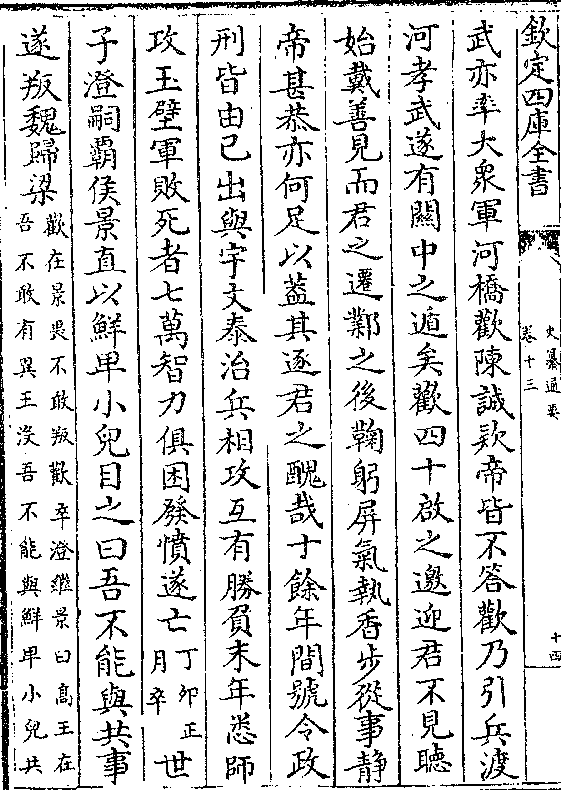 欽定四庫全書
史纂通要
卷十三
十四
武亦率大衆軍河橋歡陳誠欵帝皆不答歡乃引兵渡
河孝武遂有關中之遁矣歡四十啟之邀迎君不見聽
始戴善見而君之遷鄴之後鞠躬屏氣執香步從事静
帝甚恭亦何足以葢其逐君之醜哉十餘年間號令政
刑皆由已出與宇文泰治兵相攻互有勝負末年悉師
攻玉壁軍敗死者七萬智力俱困發憤遂亡丁卯正月卒世
子澄嗣霸侯景直以鮮卑小兒目之曰吾不能與共事
遂叛魏歸梁歡在景畏不敢叛歡卒澄繼景曰髙王在吾不敢有異王沒吾不能與鮮卑小兒共